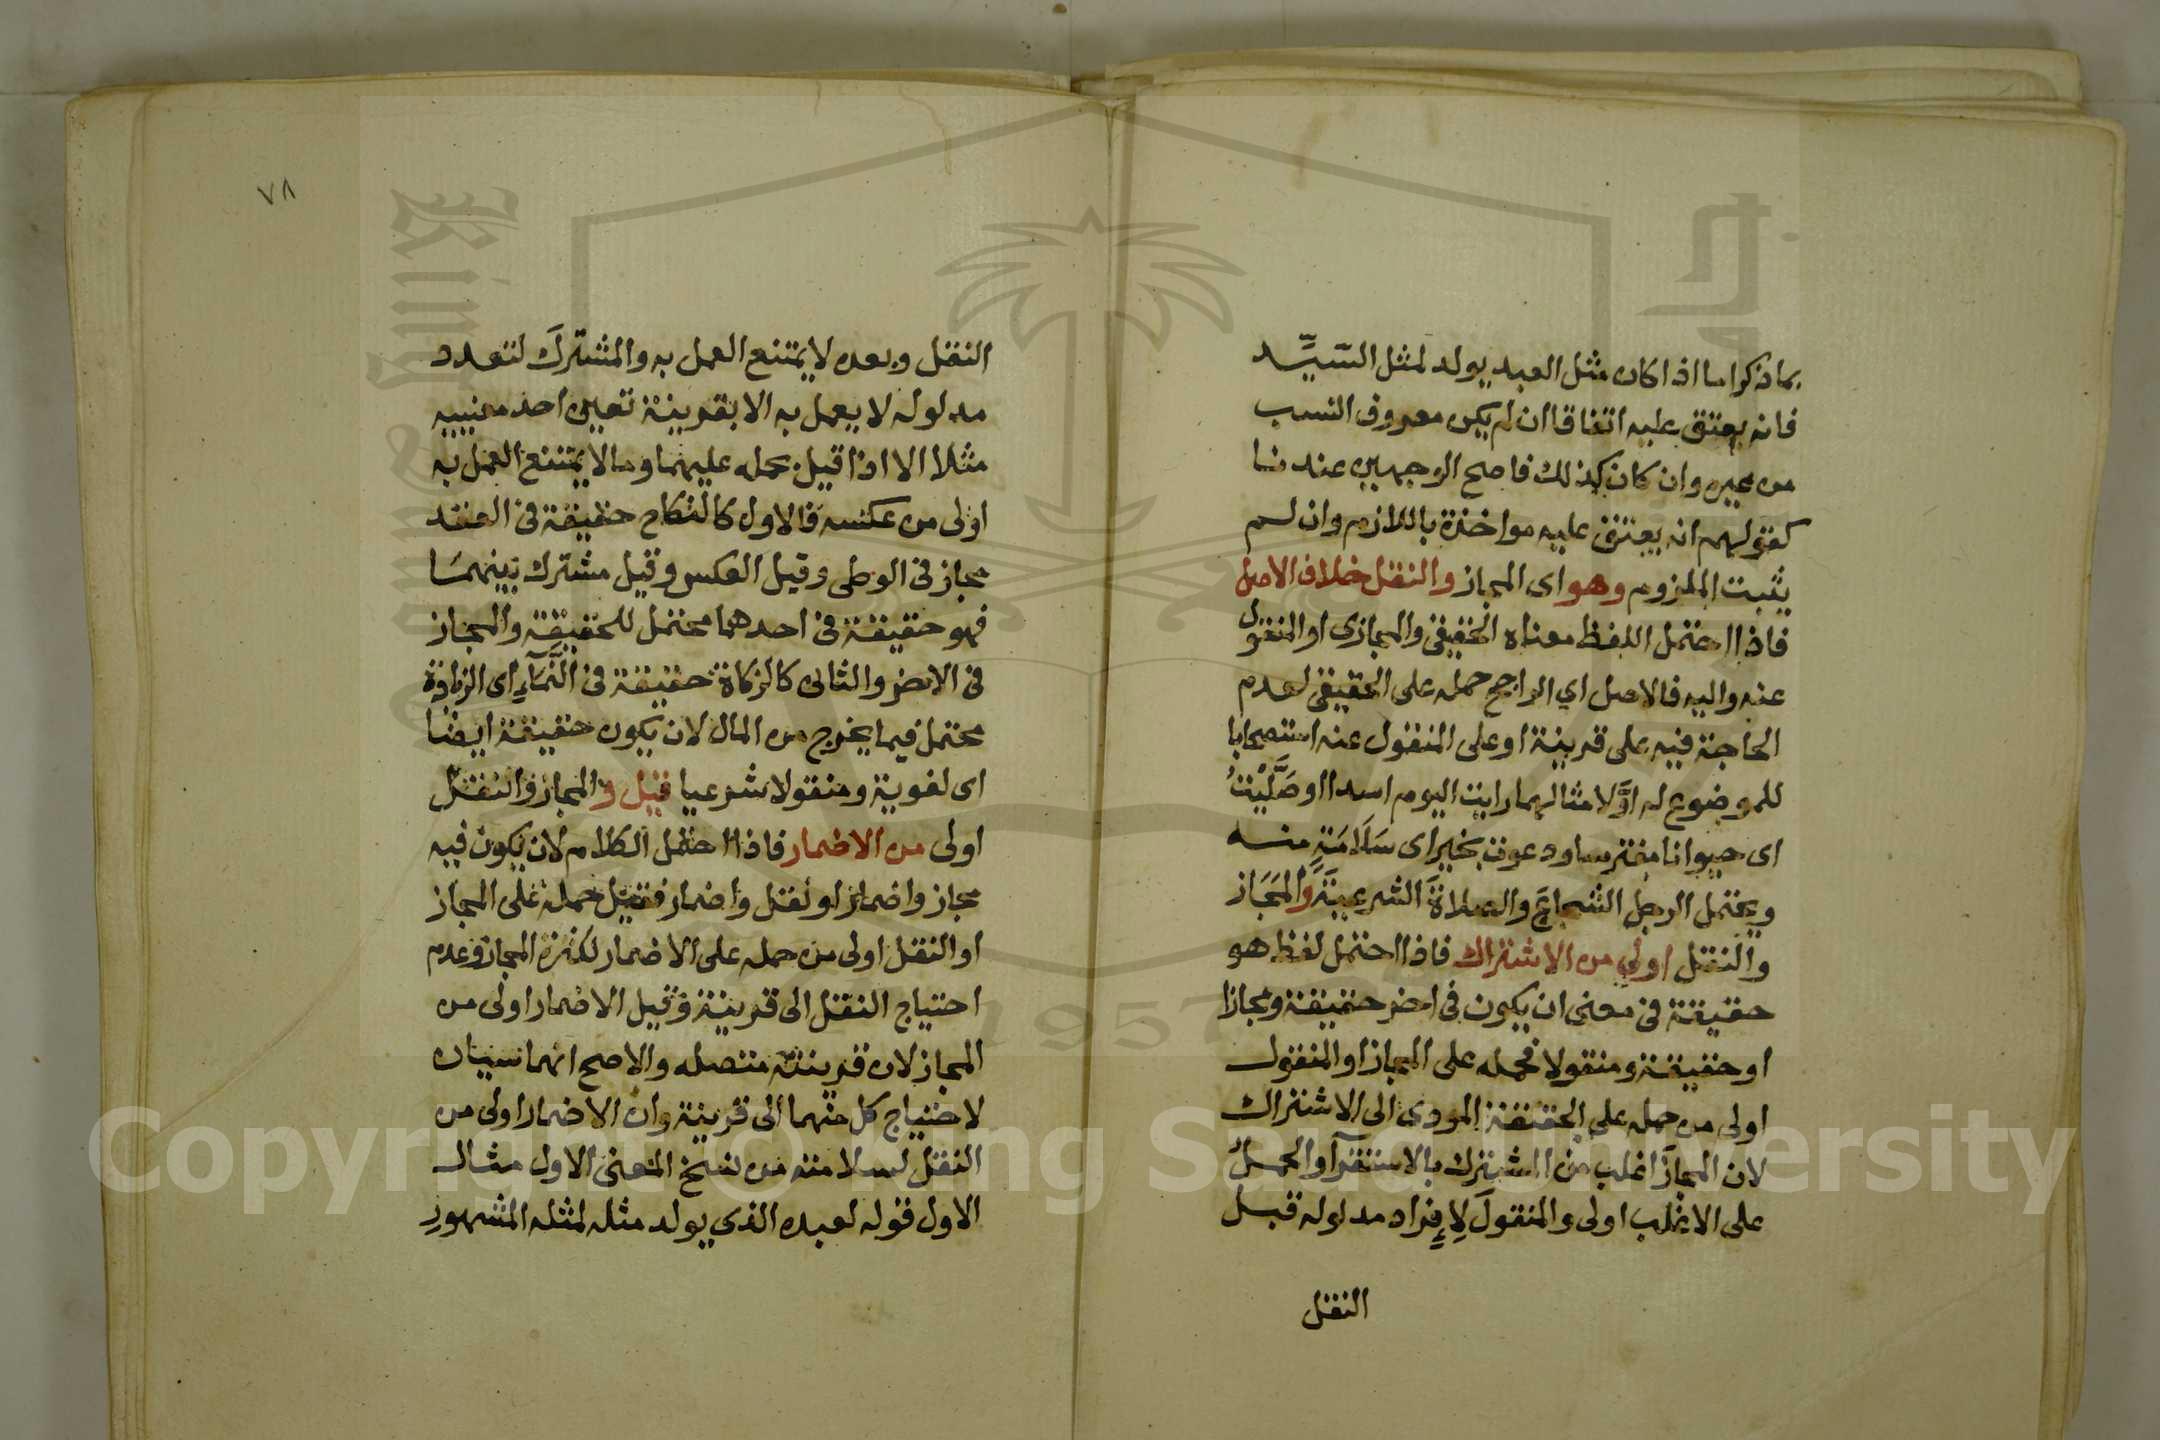 بما ذكر اما اذا كان مثل العبد يولد لمثل السَّيِّد
فانه يعتق عليه اتفاقا ان لم يكن معروف النسب
من غيره وان كان كذلك فاصح الوجهين عندنا
كقولهم انه يعتق عليه مواخذة باللازم وان لم
يثبت الملزوم وهو اى المجاز والنقل خلاف الاصل
فاذا احتمل اللفظ معناه الحقيقى والمجازى او المنقول
عنه واليه فالاصل اي الراجح حمله على الحقيقى لعدم
الحاجة فيه على قرينة او على المنقول عنه استصحابا
للموضوع له اوَّلا مثالهما رايت اليوم اسدا او صَلَّيْتُ
اى حيوانا مفترسا ودعوت بخير اى سَلَامَةٍ منه
ويحتمل الرجل الشجاعَ والصلاةَ الشرعيةَ والمَجَاز
والنقل اولى من الاشتراك فاذا احتمل لفظ هو
حقيقة فى معنى ان يكون فى اخر حقيقة ومجازا
او حقيقة ومنقولا فحمله على المجاز او المنقول
اولى من حمله على الحقيقة المودى الى الاشتراك
لان المجازَ اغلب من المشترك بالاستقرآ والحملُ
على الاغلب اولى والمنقولَ لِإِفراد مدلوله قبل
النقل
٧٨
النقل وبعده لا يمتنع العمل به والمشتركَ لتعدد
مدلوله لا يعمل به الا بقرينة تعين احد معنييه
مثلا الا اذا قيل بحمله عليهما وما لا يمتنع العمل به
اولى من عكسه فالاول كالنكاح حقيقة فى العقد
مجاز فى الوطى وقيل العكس وقيل مشترك بينهمَا
فهو حقيقة فى احدهما محتمل للحقيقة والمجاز
فى الاخر والثانى كالزكاة حقيقة فى النَّمَآءِ اى الزيادة
محتمل فيما يخرج من المال لان يكون حقيقة ايضا
اى لغوية ومنقولا شرعيا قيل و المجاز والنقل
اولى من الاضمار فاذا احتمل الكلام لان يكون فيه
مجاز واضمار او نقل واضمار فقيل حمله على المجاز
او النقل اولى من حمله على الاضمار لكثرة المجاز وعدم
احتياج النقل الى قرينة وقيل الاضمار اولى من
المجاز لان قرينته متصله والاصح انهما سيان
لاحتياج كل منهما الى قرينة وان الاضمار اولى من
النقل لسلامته من نسخ المعنى الاول مثال
الاول قوله لعبده الذى يولد مثله لمثله المشهورِ
Copyright © King Saud University
1957